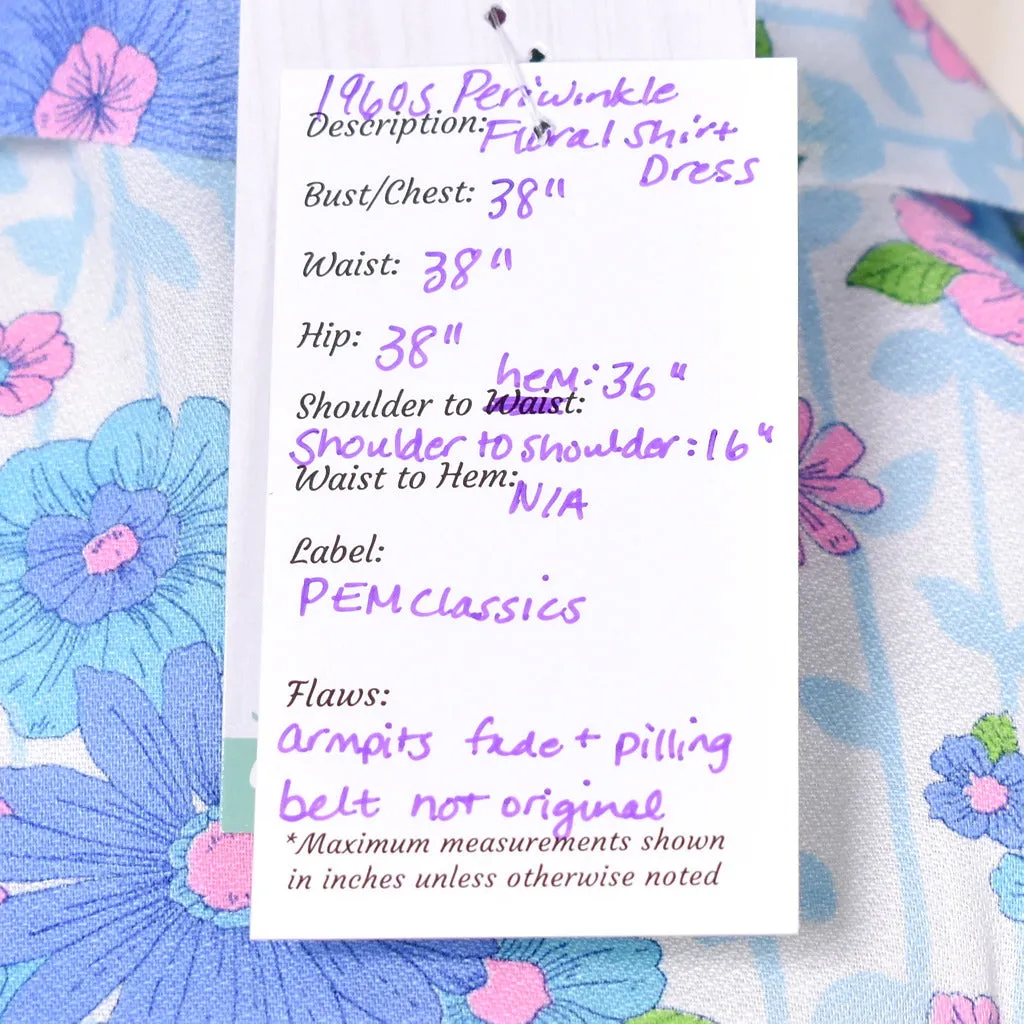 1960s Periwinkle
Description: Floral Shirt
Dress
Bust/Chest: 38"
Waist: 38"
Hip: 38"
hem: 36"
Shoulder to Waist:
Shoulder to shoulder: 16"
Waist to Hem:
N/A
Label:
PEM Classics
Flaws:
armpits fade + pilling
belt not original
*Maximum measurements shown
in inches unless otherwise noted